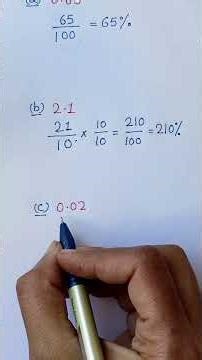 65/100 = 65%
(b) 2.1
21/10. × 10/10 = 210/100 = 210%
(c) 0.02